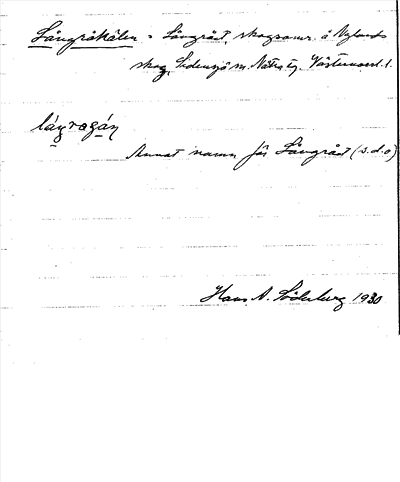 Långråkälen = Långrået, skogsomr. å Nylands
skog, Sidensjö sn. Nätra tg. Västernorrl. l.
Annat namn för Långrået (s.d.o)
Hans A. Söderberg 1930